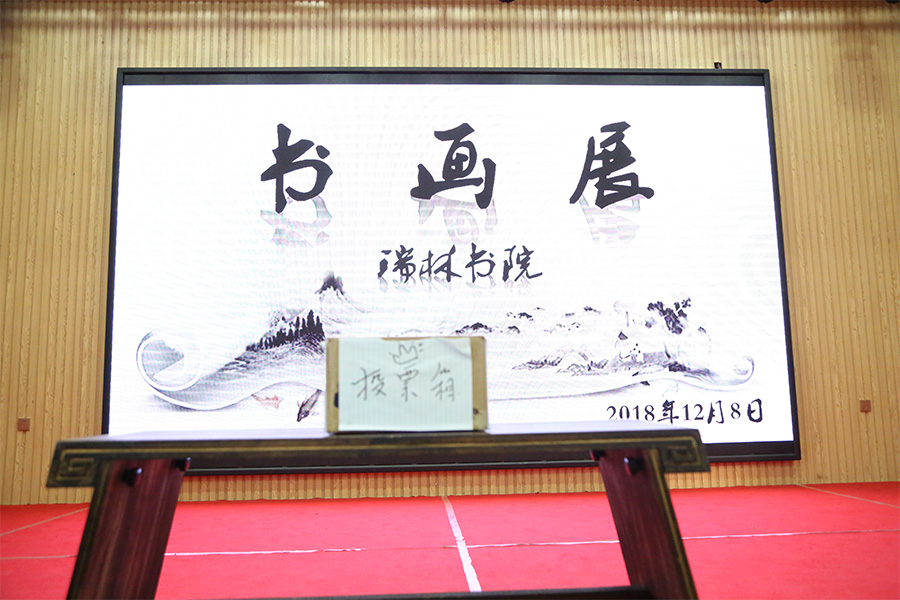 书画展
瑞林书院
投票箱
2018年12月8日